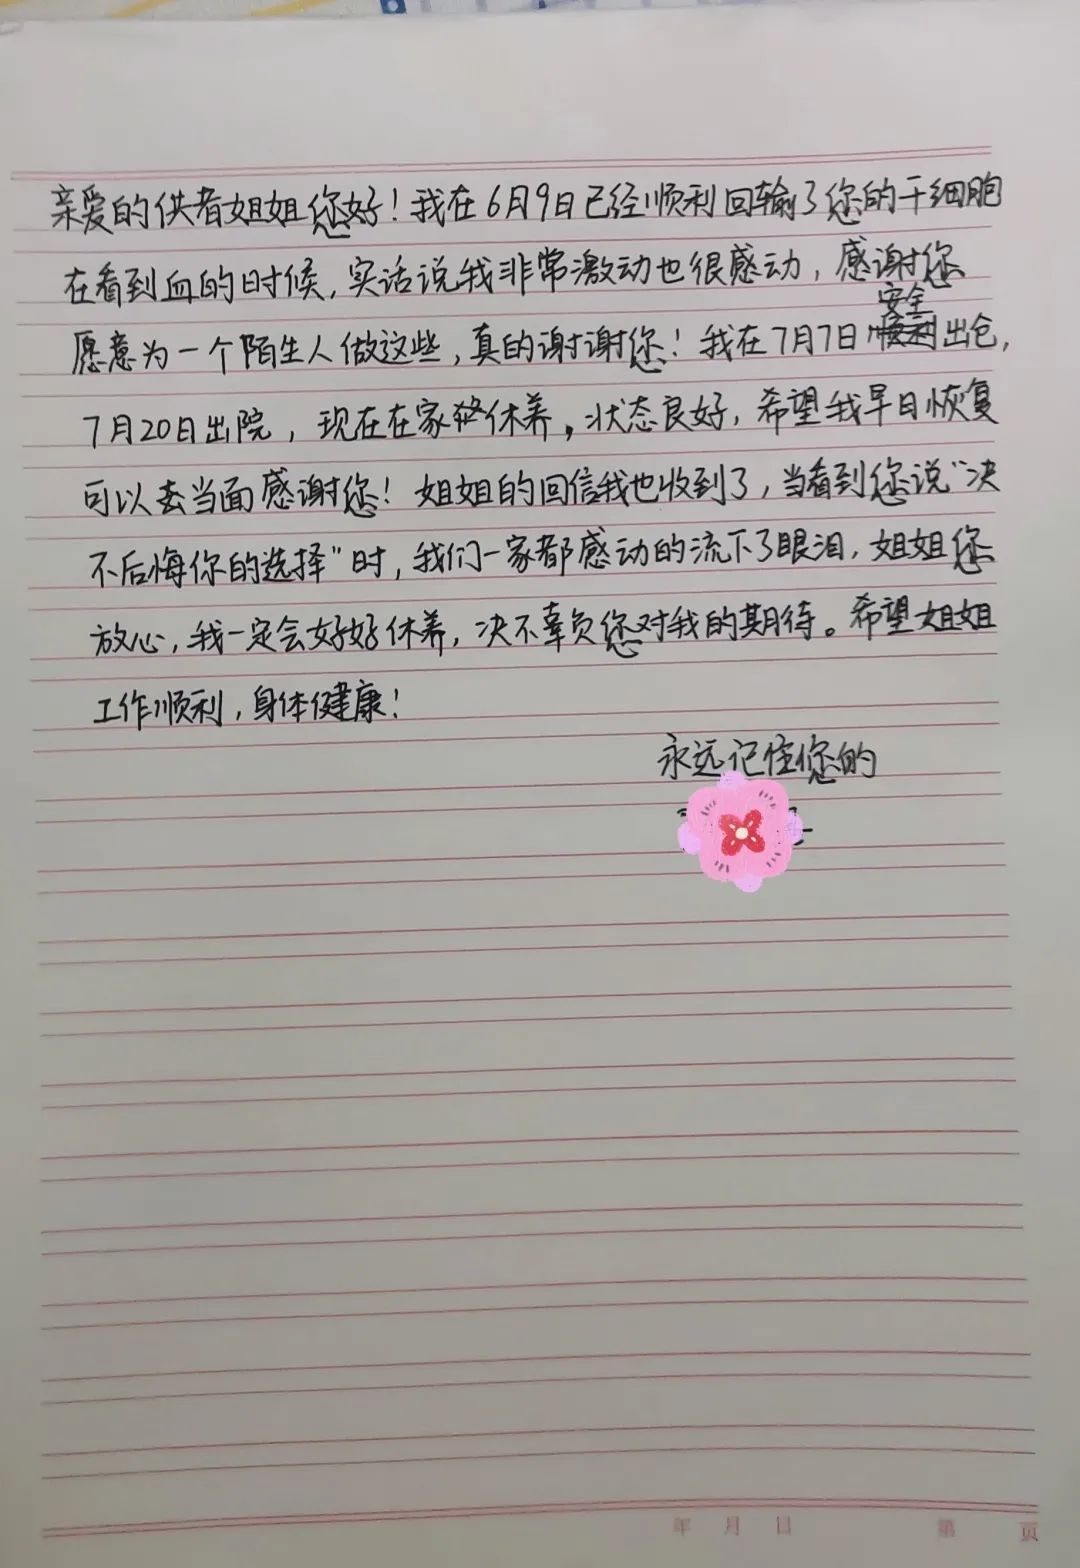 亲爱的供者姐姐您好！我在6月9日已经顺利回输了您的干细胞
在看到血的时候，实话说我非常激动也很感动，感谢您
安全
愿意为一个陌生人做这些，真的谢谢您！我在7月7日出仓，
7月20日出院，现在在家休养。状态良好，希望我早日恢复
可以去当面感谢您！姐姐的回信我也收到了，当看到您说“决
不后悔你的选择”时，我们一家都感动的流下了眼泪，姐姐您
放心，我一定会好好休养，决不辜负您对我的期待。希望姐姐
工作顺利，身体健康！
永远记住您的
年 月 日 第 页